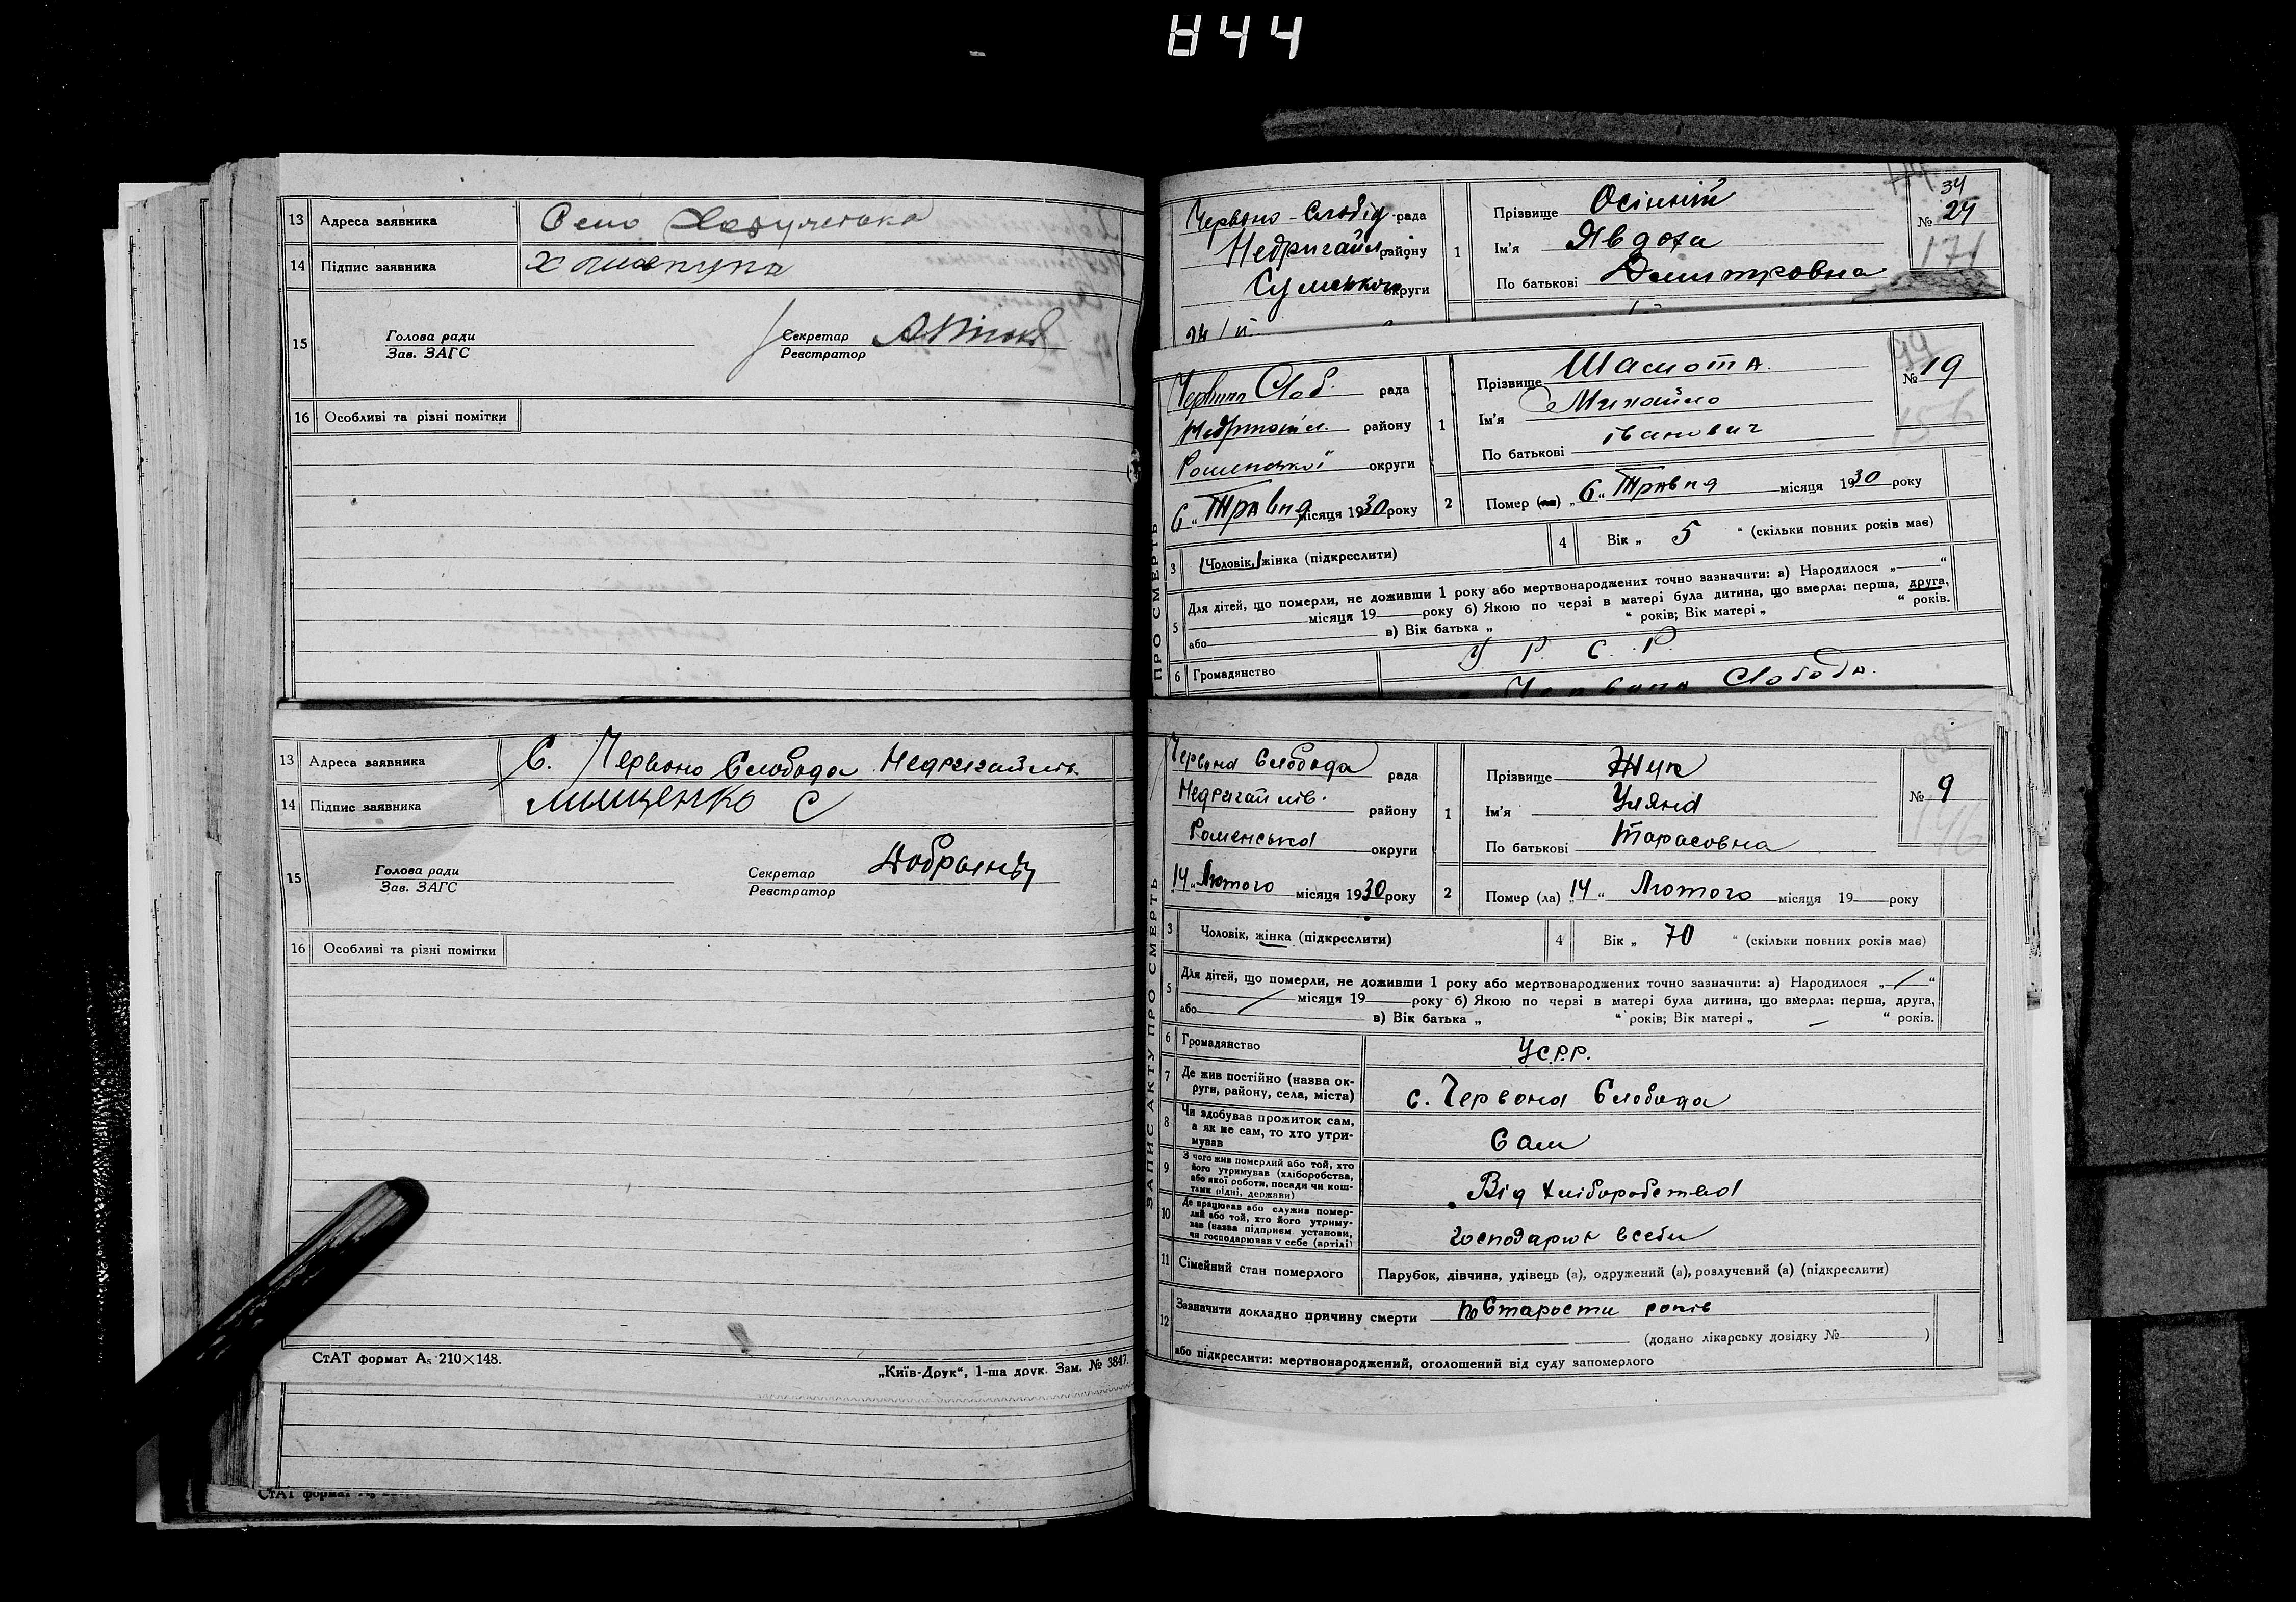 844
13 Адреса заявника Село
14 Підпис заявника
15 Голова ради
Зав. ЗАГС
Секретар
Реєстратор
16 Особливі та різні помітки
13 Адреса заявника С. Червона Слобода Недригайлів.
14 Підпис заявника Мищенко С
15 Голова ради
Зав. ЗАГС
Секретар
Реєстратор
16 Особливі та різні помітки
СтАТ формат А₅ 210×148.
„Київ-Друк“, 1-ша друк. Зам. № 3847.
СтАТ формат
Червоно-Слобід рада
Недригайл району
Сумського округи
24/II
1 Прізвище Осінній
Ім'я Явдоха
По батькові Дмитровна
34
№ 24
171
Червона Слоб. рада
Недригайл. району
Роменської округи
6 „ Травня місяця 1930 року
1 Прізвище Шамота.
Ім'я Михайло
По батькові іванович
99
№ 19
156
2 Помер (ла) „ 6 “ Травня місяця 1930 року
3 Чоловік, жінка (підкреслити)
4 Вік „ 5 “ (скільки повних років має)
5 Для дітей, що померли, не доживши 1 року або мертвонароджених точно зазначити: а) Народилося „ “
місяця 19 року б) Якою по черзі в матері була дитина, що вмерла: перша, друга,
або в) Вік батька „ “ років; Вік матері „ “ років.
6 Громадянство У Р. С. Р.
Червона Слобода.
ПРО СМЕРТЬ
Червона Слобода рада
Недригайлів. району
Роменська округи
14 „ Лютого місяця 1930 року
1 Прізвище Жук
Ім'я Уляна
По батькові Тарасовна
№ 9
146
2 Помер (ла) „ 14 “ Лютого місяця 19 року
3 Чоловік, жінка (підкреслити)
4 Вік „ 70 “ (скільки повних років має)
5 Для дітей, що померли, не доживши 1 року або мертвонароджених точно зазначити: а) Народилося „ “
місяця 19 року б) Якою по черзі в матері була дитина, що вмерла: перша, друга,
або в) Вік батька „ “ років; Вік матері „ “ років.
6 Громадянство У.С.Р.Р.
7 Де жив постійно (назва округи, району, села, міста) с. Червона Слобода
8 Чи здобував прожиток сам, а як не сам, то хто утримував Сам
9 З чого жив померлий або той, хто його утримував (хліборобства, або якої роботи, посади чи коштами рідні, держави) Від хліборобства
10 Де працював або служив померлий або той, хто його утримував (назва підприєм. установи, чи господарював у себе (артілі) господарюв всеби
11 Сімейний стан померлого Парубок, дівчина, удівець (а), одружений (а), розлучений (а) (підкреслити)
12 Зазначити докладно причину смерти по Старости років
(додано лікарську довідку № )
або підкреслити: мертвонароджений, оголошений від суду запомерлого
ЗАПИС АКТУ ПРО СМЕРТЬ